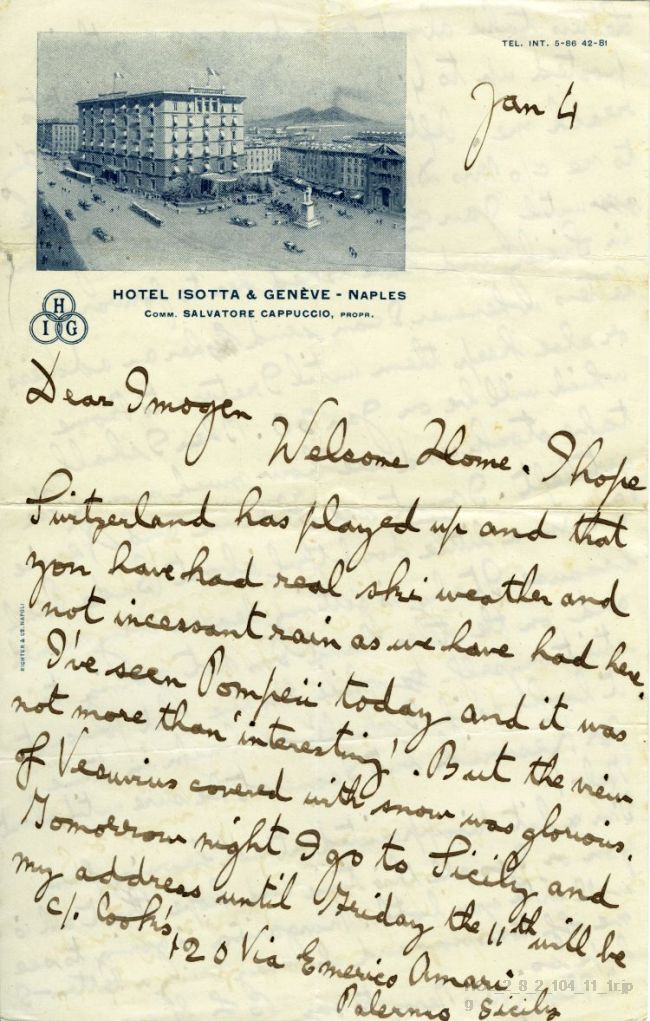 TEL. INT. 5-86 42-81
Jan 4
HOTEL ISOTTA & GENÈVE - NAPLES
COMM. SALVATORE CAPPUCCIO, PROPR.
H
I G
Dear Imogen
Welcome Home. I hope
Switzerland has played up and that
you have had real ski weather and
not incessant rain as we have had here.
I've seen Pompeii today and it was
not more than 'interesting'. But the view
of Vesuvius covered with snow was glorious.
Tomorrow night I go to Sicily and
my address until Friday the 11th will be
c/. Cook's
120 Via Emerico Amari
Palermo Sicily
RICHTER & CO. NAPOLI